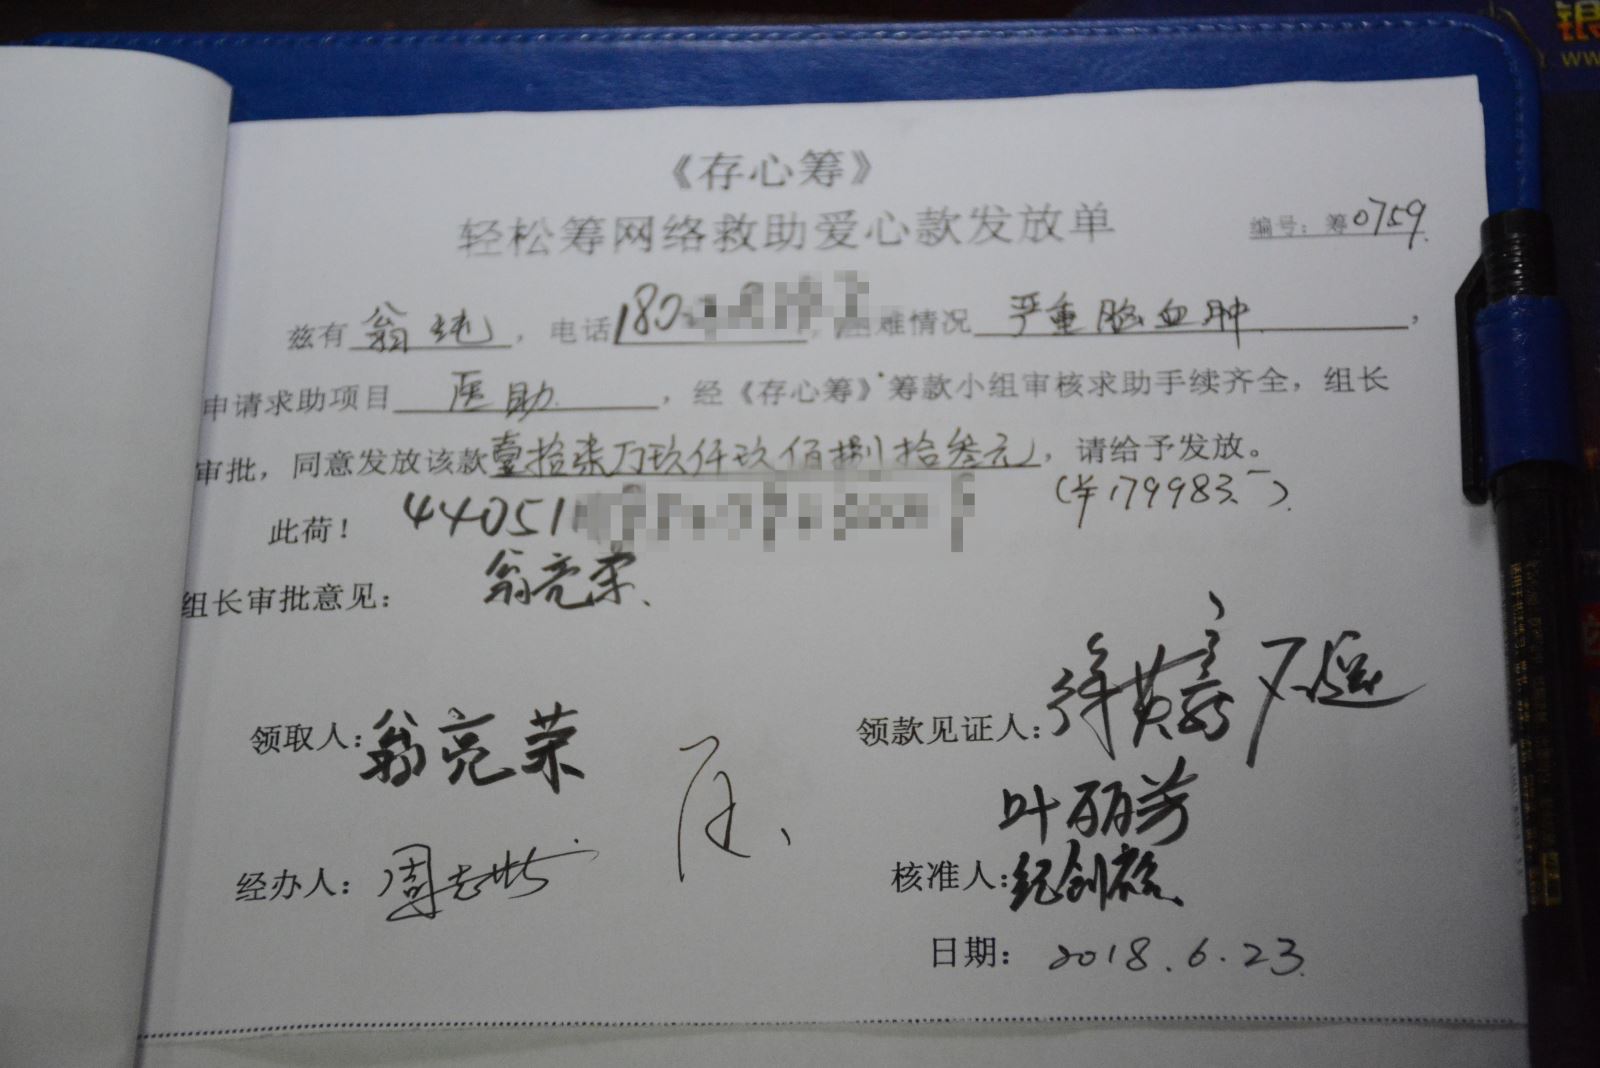 《存心筹》
轻松筹网络救助爱心款发放单
编号：筹0759
兹有翁纯，电话180，困难情况严重脑血肿，
申请求助项目医助，经《存心筹》筹款小组审核求助手续齐全，组长
审批，同意发放该款壹拾柒万玖仟玖佰捌拾叁元，请给予发放。
(¥179983元)
此荷！ 44051
组长审批意见： 翁亮荣
领取人：翁亮荣 领款见证人：
叶丽芳
经办人：周 核准人：纪创
日期：2018.6.23
银
WW